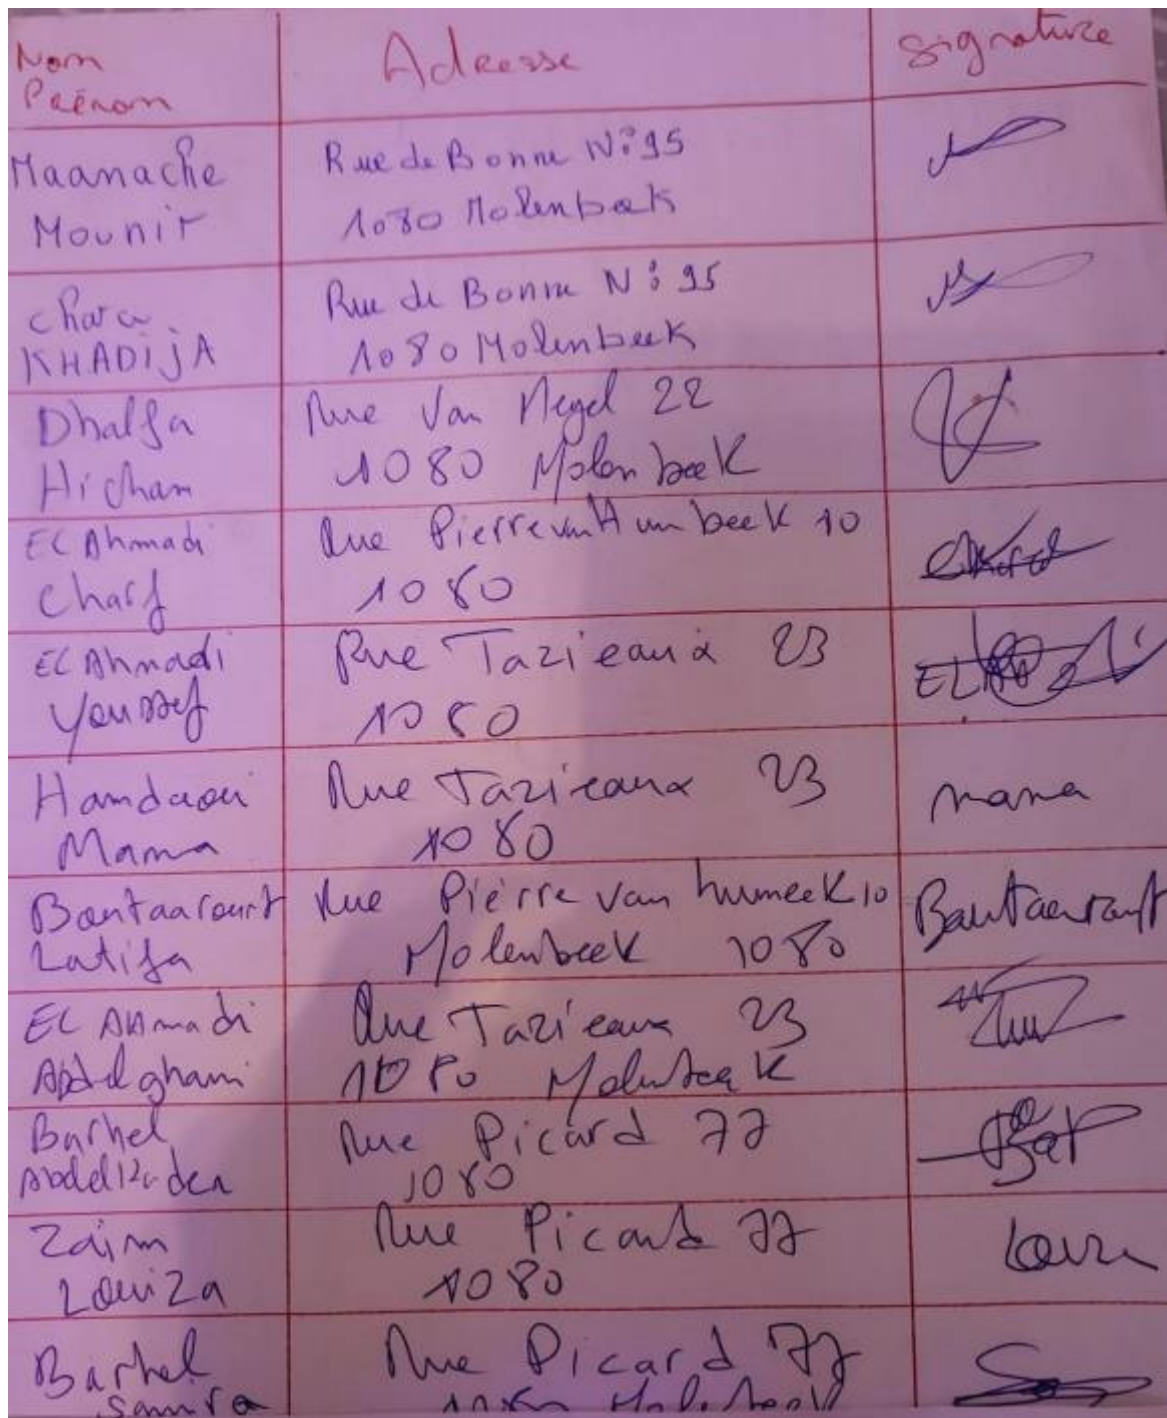 Nom
Prénom
Adresse
Signature
Maanache
Mounir
Rue de Bonne N° 95
1080 Molenbeek
Chara
KHADIJA
Rue de Bonne N° 95
1080 Molenbeek
Dhalfa
Hicham
Rue Van Megel 22
1080 Molenbeek
EL Ahmadi
Charf
Rue Pierre van Humbeek 10
1080
EL Ahmadi
Youssef
Rue Tazieaux 23
1080
Hamdaoui
Mama
Rue Tazieaux 23
1080
mama
Boutaarourt
Latifa
Rue Pierre Van humeek 10
Molenbeek 1080
EL AHmadi
Abdelghani
Rue Tazieaux 23
1080 Molenbeek
Barhel
Abdelkader
Rue Picard 77
1080
Zaim
Louiza
Rue Picard 77
1080
Barhel
Samira
Rue Picard 77
1080 Molenbeek